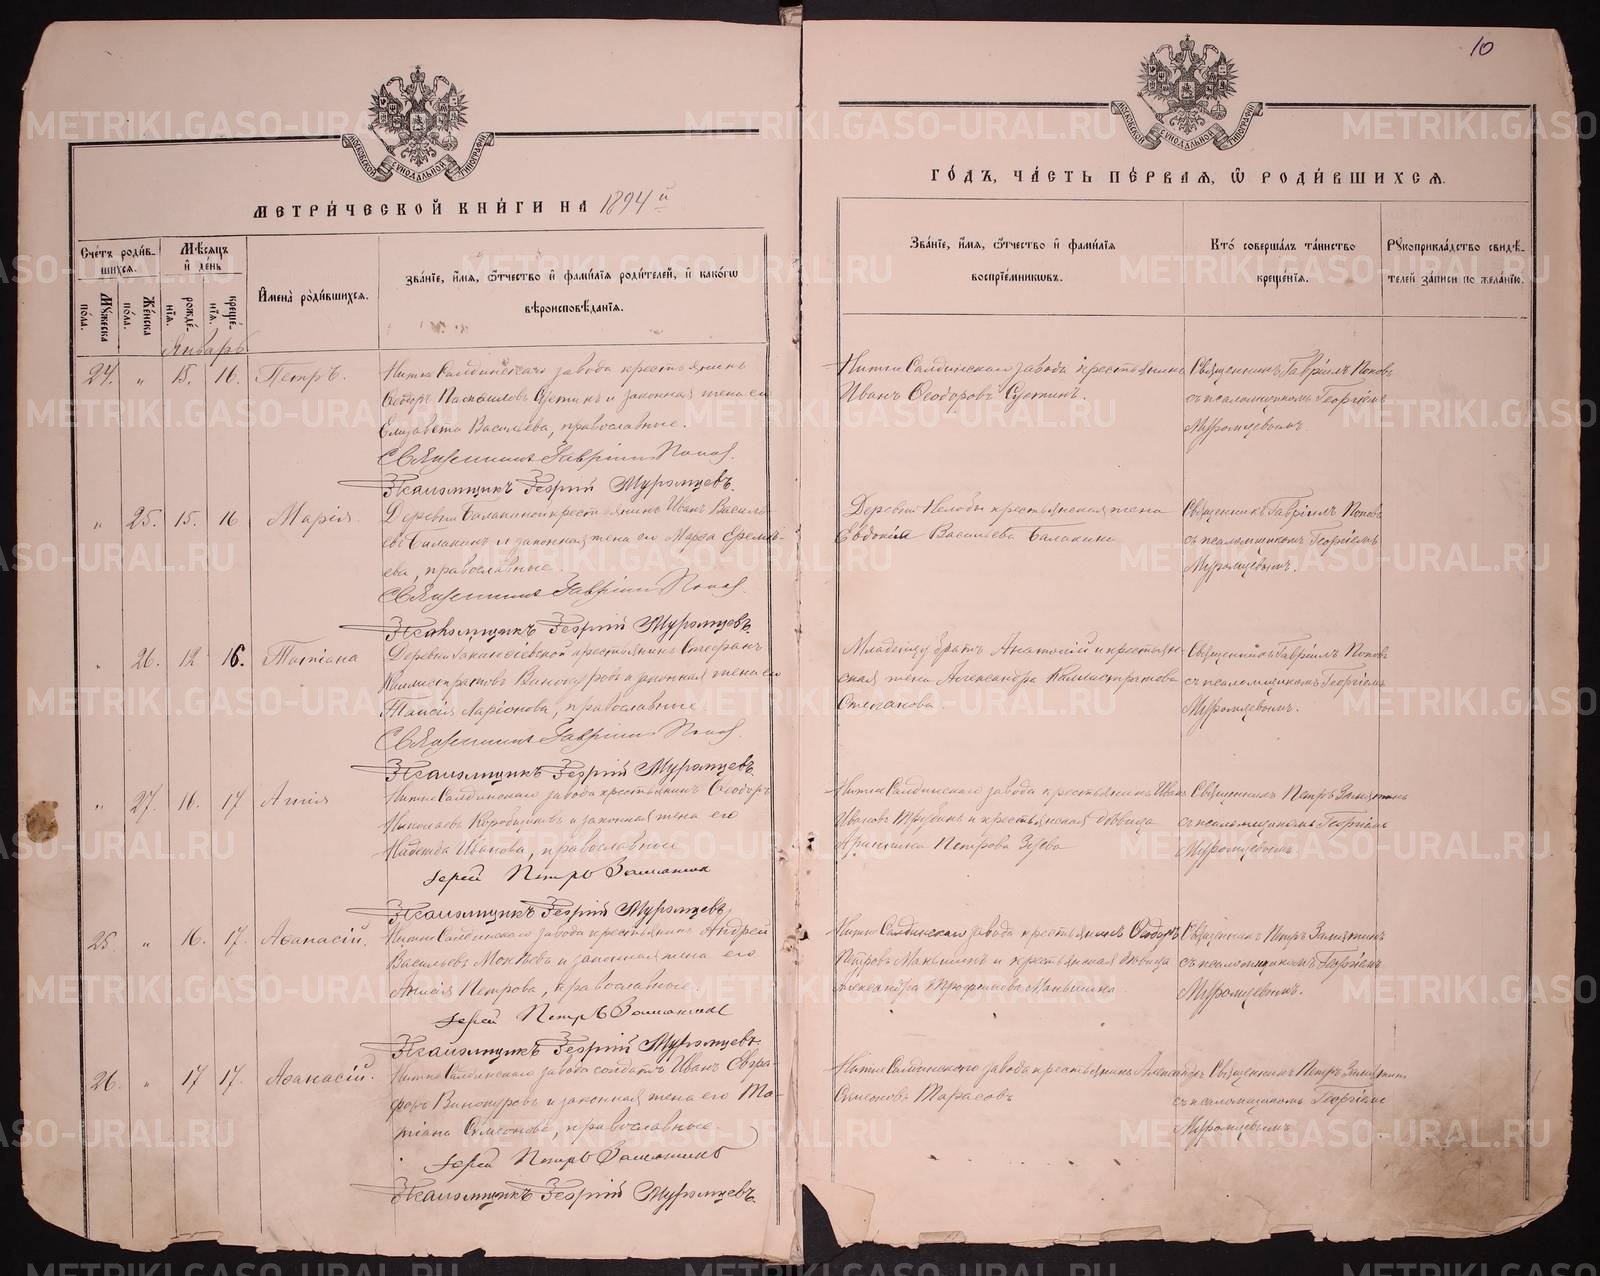 10
МОСКОВСКОЙ СИНОДАЛЬНОЙ ТИПОГРАФІИ
МОСКОВСКОЙ СИНОДАЛЬНОЙ ТИПОГРАФІИ
МЕТРИ́ЧЕСКОЙ КНИ́ГИ НА 1894 й
ГО́ДЪ, ЧА́СТЬ ПЕ́РВАѦ, Ѡ҆ РОДИ́ВШИХСѦ.
Сче́тъ роди́в-
шихсѧ.
Мꙋ́жеска по́ла.
Же́нска по́ла.
Мѣ́сѧцъ и҆ де́нь
рожде́-нїѧ.
креще́-нїѧ.
И҆мена̀ роди́вшихсѧ.
Зва́нїе, и҆́мѧ, ѻ҆́тчество и҆ фамі́лїѧ роди́телей, и҆ како́гѡ
вѣроисповѣ́данїѧ.
Зва́нїе, и҆́мѧ, ѻ҆́тчество и҆ фамі́лїѧ
воспрїе́мникѡвъ.
Кто̀ соверша́лъ та́инство
креще́нїѧ.
Рꙋкоприкла́дство свидѣ́-
телей за́писи по жела́нїю.
Январь
24. " 15. 16. Петръ.
Нижне Салдинскаго завода крестьянинъ
Сустинъ и законная жена его
Елизавета Васильева, православные.
Священникъ Гавріилъ Поповъ.
Псаломщикъ Георгій Муромцевъ.
Нижне Салдинскаго завода крестьянинъ
Иванъ Ѳеодоровъ Сустинъ.
Священникъ Гавріилъ Поповъ
съ псаломщикомъ Георгіемъ
Муромцевымъ.
" 25. 15. 16 Марія
Деревни Балакиной крестьянинъ Иванъ Василь-
евъ Балакинъ и законная жена его Марѳа Еремѣ-
ева, православные.
Священникъ Гавріилъ Поповъ.
Псаломщикъ Георгій Муромцевъ.
Деревни Нелобы крестьянская жена
Евдокія Васильева Балакина
Священникъ Гавріилъ Поповъ
съ псаломщикомъ Георгіемъ
Муромцевымъ.
" 26. 12 16. Татіана
Деревни крестьянинъ Стефанъ
Каллистратовъ Винокуровъ и законная жена его
Таисія Ларіонова, православные
Священникъ Гавріилъ Поповъ.
Псаломщикъ Георгій Муромцевъ.
Младенцу братъ Анатолій и крестьян-
ская жена Александра Каллистратова
Степанова
Священникъ Гавріилъ Поповъ
съ псаломщикомъ Георгіемъ
Муромцевымъ.
" 27. 16. 17
Нижне Салдинскаго завода крестьянинъ Ѳеодоръ
Николаевъ и законная жена его
Надежда Иванова, православные
Іерей Петръ Замятинъ
Псаломщикъ Георгій Муромцевъ.
Нижне Салдинскаго завода крестьянинъ Иванъ
Ивановъ Трубинъ и крестьянская дѣвица
Петрова Зуева
Священникъ Петръ Замятинъ
съ псаломщикомъ Георгіемъ
Муромцевымъ
25. " 16. 17. Аѳанасій.
Нижне Салдинскаго завода крестьянинъ Андрей
Васильевъ Мокѣевъ и законная жена его
Анисія Петрова, православные.
Іерей Петръ Замятинъ
Псаломщикъ Георгій Муромцевъ.
Нижне Салдинскаго завода крестьянинъ Ѳеодоръ
Петровъ Маньшинъ и крестьянская дѣвица
Александра Трофимова Маньшина
Священникъ Петръ Замятинъ
съ псаломщикомъ Георгіемъ
Муромцевымъ.
26. " 17 17. Аѳанасій.
Нижне Салдинскаго завода солдатъ Иванъ Евгра-
фовъ Винокуровъ и законная жена его Та-
тіана Симеонова, православные
Іерей Петръ Замятинъ
Псаломщикъ Георгій Муромцевъ.
Нижне Салдинскаго завода крестьянинъ Александръ
Симеоновъ Тарасовъ
Священникъ Петръ Замятинъ
съ псаломщикомъ Георгіемъ
Муромцевымъ
METRIKI.GASO-URAL.RU